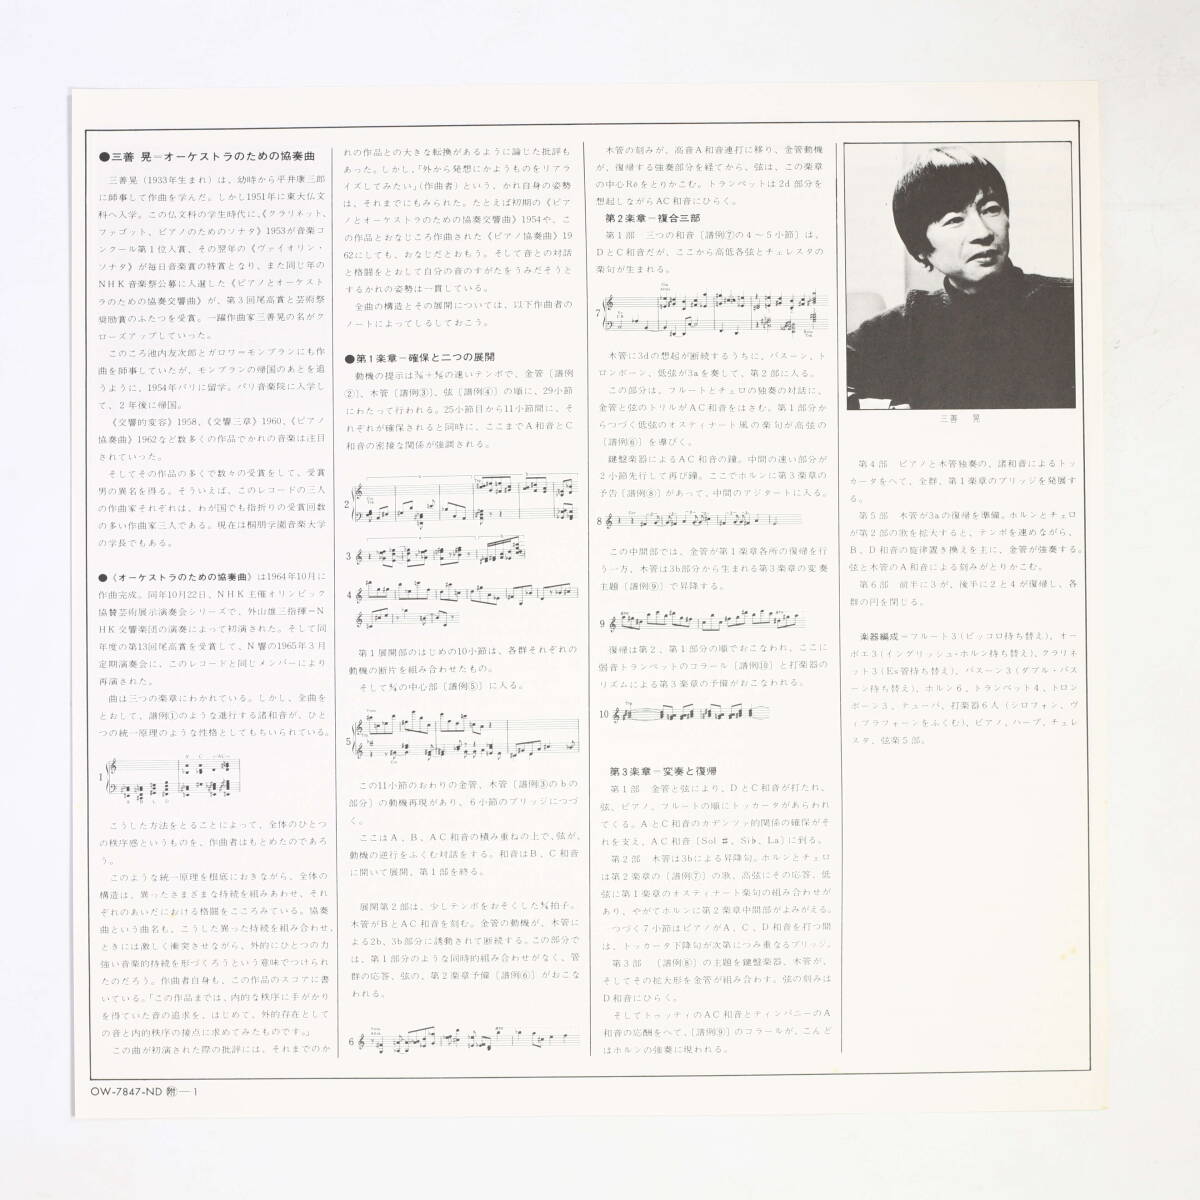 ●三善 晃＝オーケストラのための協奏曲
三善晃(1933年生まれ)は、幼時から平井康三郎
に師事して作曲を学んだ。しかし1951年に東大仏文
科へ入学。この仏文科の学生時代に、《クラリネット、
ファゴット、ピアノのためのソナタ》1953が音楽コ
ンクール第1位入賞、その翌年の《ヴァイオリン・
ソナタ》が毎日音楽賞の特賞となり、また同じ年の
NHK音楽祭公募に入選した《ピアノとオーケスト
ラのための協奏交響曲》が、第3回尾高賞と芸術祭
奨励賞のふたつを受賞。一躍作曲家三善晃の名がク
ローズアップしていった。
このころ池内友次郎とガロワ＝モンブランにも作
曲を師事していたが、モンブランの帰国のあとを追
うように、1954年パリに留学。パリ音楽院に入学し
て、2年後に帰国。
《交響的変容》1958、《交響三章》1960、《ピアノ
協奏曲》1962など数多くの作品でかれの音楽は注目
されていった。
そしてその作品の多くで数々の受賞をして、受賞
男の異名を得る。そういえば、このレコードの三人
の作曲家それぞれは、わが国でも指折りの受賞回数
の多い作曲家三人である。現在は桐朋学園音楽大学
の学長でもある。
●《オーケストラのための協奏曲》は1964年10月に
作曲完成。同年10月22日、NHK主催オリンピック
協賛芸術展示演奏会シリーズで、外山雄三指揮＝N
HK交響楽団の演奏によって初演された。そして同
年度の第13回尾高賞を受賞して、N響の1965年3月
定期演奏会に、このレコードと同じメンバーにより
再演された。
曲は三つの楽章にわかれている。しかし、全曲を
とおして、譜例①のような進行する諸和音が、ひと
つの統一原理のような性格としてもちいられている。
1
こうした方法をとることによって、全体のひとつ
の秩序感というものを、作曲者はもとめたのであろ
う。
このような統一原理を根底におきながら、全体の
構造は、異ったさまざまな持続を組みあわせ、それ
ぞれのあいだにおける格闘をこころみている。協奏
曲という曲名も、こうした異った持続を組み合わせ、
ときには激しく衝突させながら、外的にひとつの力
強い音楽的持続を形づくろうという意味でつけられ
たのだろう。作曲者自身も、この作品のスコアに書
いている。「この作品までは、内的な秩序に手がかり
を得ていた音の追求を、はじめて、外的存在として
の音と内的秩序の接点に求めてみたものです。」
この曲が初演された際の批評には、それまでのか
れの作品との大きな転換があるように論じた批評も
あった。しかし、「外から発想にかようものをリアラ
イズしてみたい」(作曲者)という、かれ自身の姿勢
は、それまでにもみられた。たとえば初期の《ピア
ノとオーケストラのための協奏交響曲》1954や、こ
の作品とおなじころ作曲された《ピアノ協奏曲》19
62にしても、おなじだとおもう。そして音との対話
と格闘をとおして自分の音のすがたをうみだそうと
するかれの姿勢は一貫している。
全曲の構造とその展開については、以下作曲者の
ノートによってしるしておこう。
●第1楽章－確保と二つの展開
動機の提示は の速いテンポで、金管〔譜例
②〕、木管〔譜例③〕、弦〔譜例④〕の順に、29小節
にわたって行われる。25小節目から11小節間に、そ
れぞれが確保されると同時に、ここまでA和音とC
和音の密接な関係が強調される。
2
3
4
第1展開部のはじめの10小節は、各群それぞれの
動機の断片を組み合わせたもの。
そして の中心部〔譜例⑤〕に入る。
5
この11小節のおわりの金管、木管〔譜例③のbの
部分〕の動機再現があり、6小節のブリッジにつづ
く。
ここはA、B、AC和音の積み重ねの上で、弦が、
動機の逆行をふくむ対話をする。和音はB、C和音
に開いて展開、第1部を終る。
展開第2部は、少しテンポをおそくした 拍子。
木管がBとAC和音を刻む。金管の動機が、木管に
よる2b、3b部分に誘動されて断続する。この部分で
は、第1部分のような同時的組合わせがなく、管
群の応答、弦の、第2楽章予備〔譜例⑥〕がおこな
われる。
6
木管の刻みが、高音A和音連打に移り、金管動機
が、復帰する強奏部分を経てから、弦は、この楽章
の中心Reをとりかこむ。トランペットは2d部分を
想起しながらAC和音にひらく。
第2楽章－複合三部
第1部　三つの和音〔譜例⑦の4～5小節〕は、
DとC和音だが、ここから高低各弦とチェレスタの
楽句が生まれる。
7
木管に3dの想起が断続するうちに、バスーン、ト
ロンボーン、低弦が3aを奏して、第2部に入る。
この部分は、フルートとチェロの独奏の対話に、
金管と弦のトリルがAC和音をはさむ。第1部分か
らつづく低弦のオスティナート風の楽句が高弦の
〔譜例⑥〕を導びく。
鍵盤楽器によるAC和音の鐘。中間の速い部分が
2小節先行して再び鐘。ここでホルンに第3楽章の
予告〔譜例⑧〕があって、中間のアジタートに入る。
8
この中間部では、金管が第1楽章各所の復帰を行
う一方、木管は3b部分から生まれる第3楽章の変奏
主題〔譜例⑨〕で昇降する。
9
復帰は第2、第1部分の順でおこなわれ、ここに
弱音トランペットのコラール〔譜例⑩〕と打楽器の
リズムによる第3楽章の予備がおこなわれる。
10
第3楽章－変奏と復帰
第1部　金管と弦により、DとC和音が打たれ、
弦、ピアノ、フルートの順にトッカータがあらわれ
てくる。AとC和音のカデンツァ的関係の確保がそ
れを支え、AC和音〔Sol ♯、Si♭、La〕に到る。
第2部　木管は3bによる昇降句。ホルンとチェロ
は第2楽章の〔譜例⑦〕の歌、高弦にその応答、低
弦に第1楽章のオスティナート楽句の組み合わせが
あり、やがてホルンに第2楽章中間部がよみがえる。
つづく7小節はピアノがA、C、D和音を打つ間
は、トッカータ下降句が次第につみ重なるブリッジ。
第3部　〔譜例⑧〕の主題を鍵盤楽器、木管が、
そしてその拡大形を金管が組み合わす。弦の刻みは
D和音にひらく。
そしてトゥッティのAC和音とティンパニーのA
和音の応酬をへて、〔譜例⑨〕のコラールが、こんど
はホルンの強奏に現われる。
三善　晃
第4部　ピアノと木管独奏の、諸和音によるトッ
カータをへて、全群、第1楽章のブリッジを発展す
る。
第5部　木管が3aの復帰を準備。ホルンとチェロ
が第2部の歌を拡大すると、テンポを速めながら、
B、D和音の旋律置き換えを主に、金管が強奏する。
弦と木管のA和音による刻みがとりかこむ。
第6部　前半に3が、後半に2と4が復帰し、各
群の円を閉じる。
楽器編成＝フルート3(ピッコロ持ち替え)、オー
ボエ3(イングリッシュ・ホルン持ち替え)、クラリネ
ット3(Es管持ち替え)、バスーン3(ダブル・バス
ーン持ち替え)、ホルン6、トランペット4、トロン
ボーン3、テューバ、打楽器6人(シロフォン、ヴ
ィブラフォーンをふくむ)、ピアノ、ハープ、チェレ
スタ、弦楽5部。
OW-7847-ND 附－1